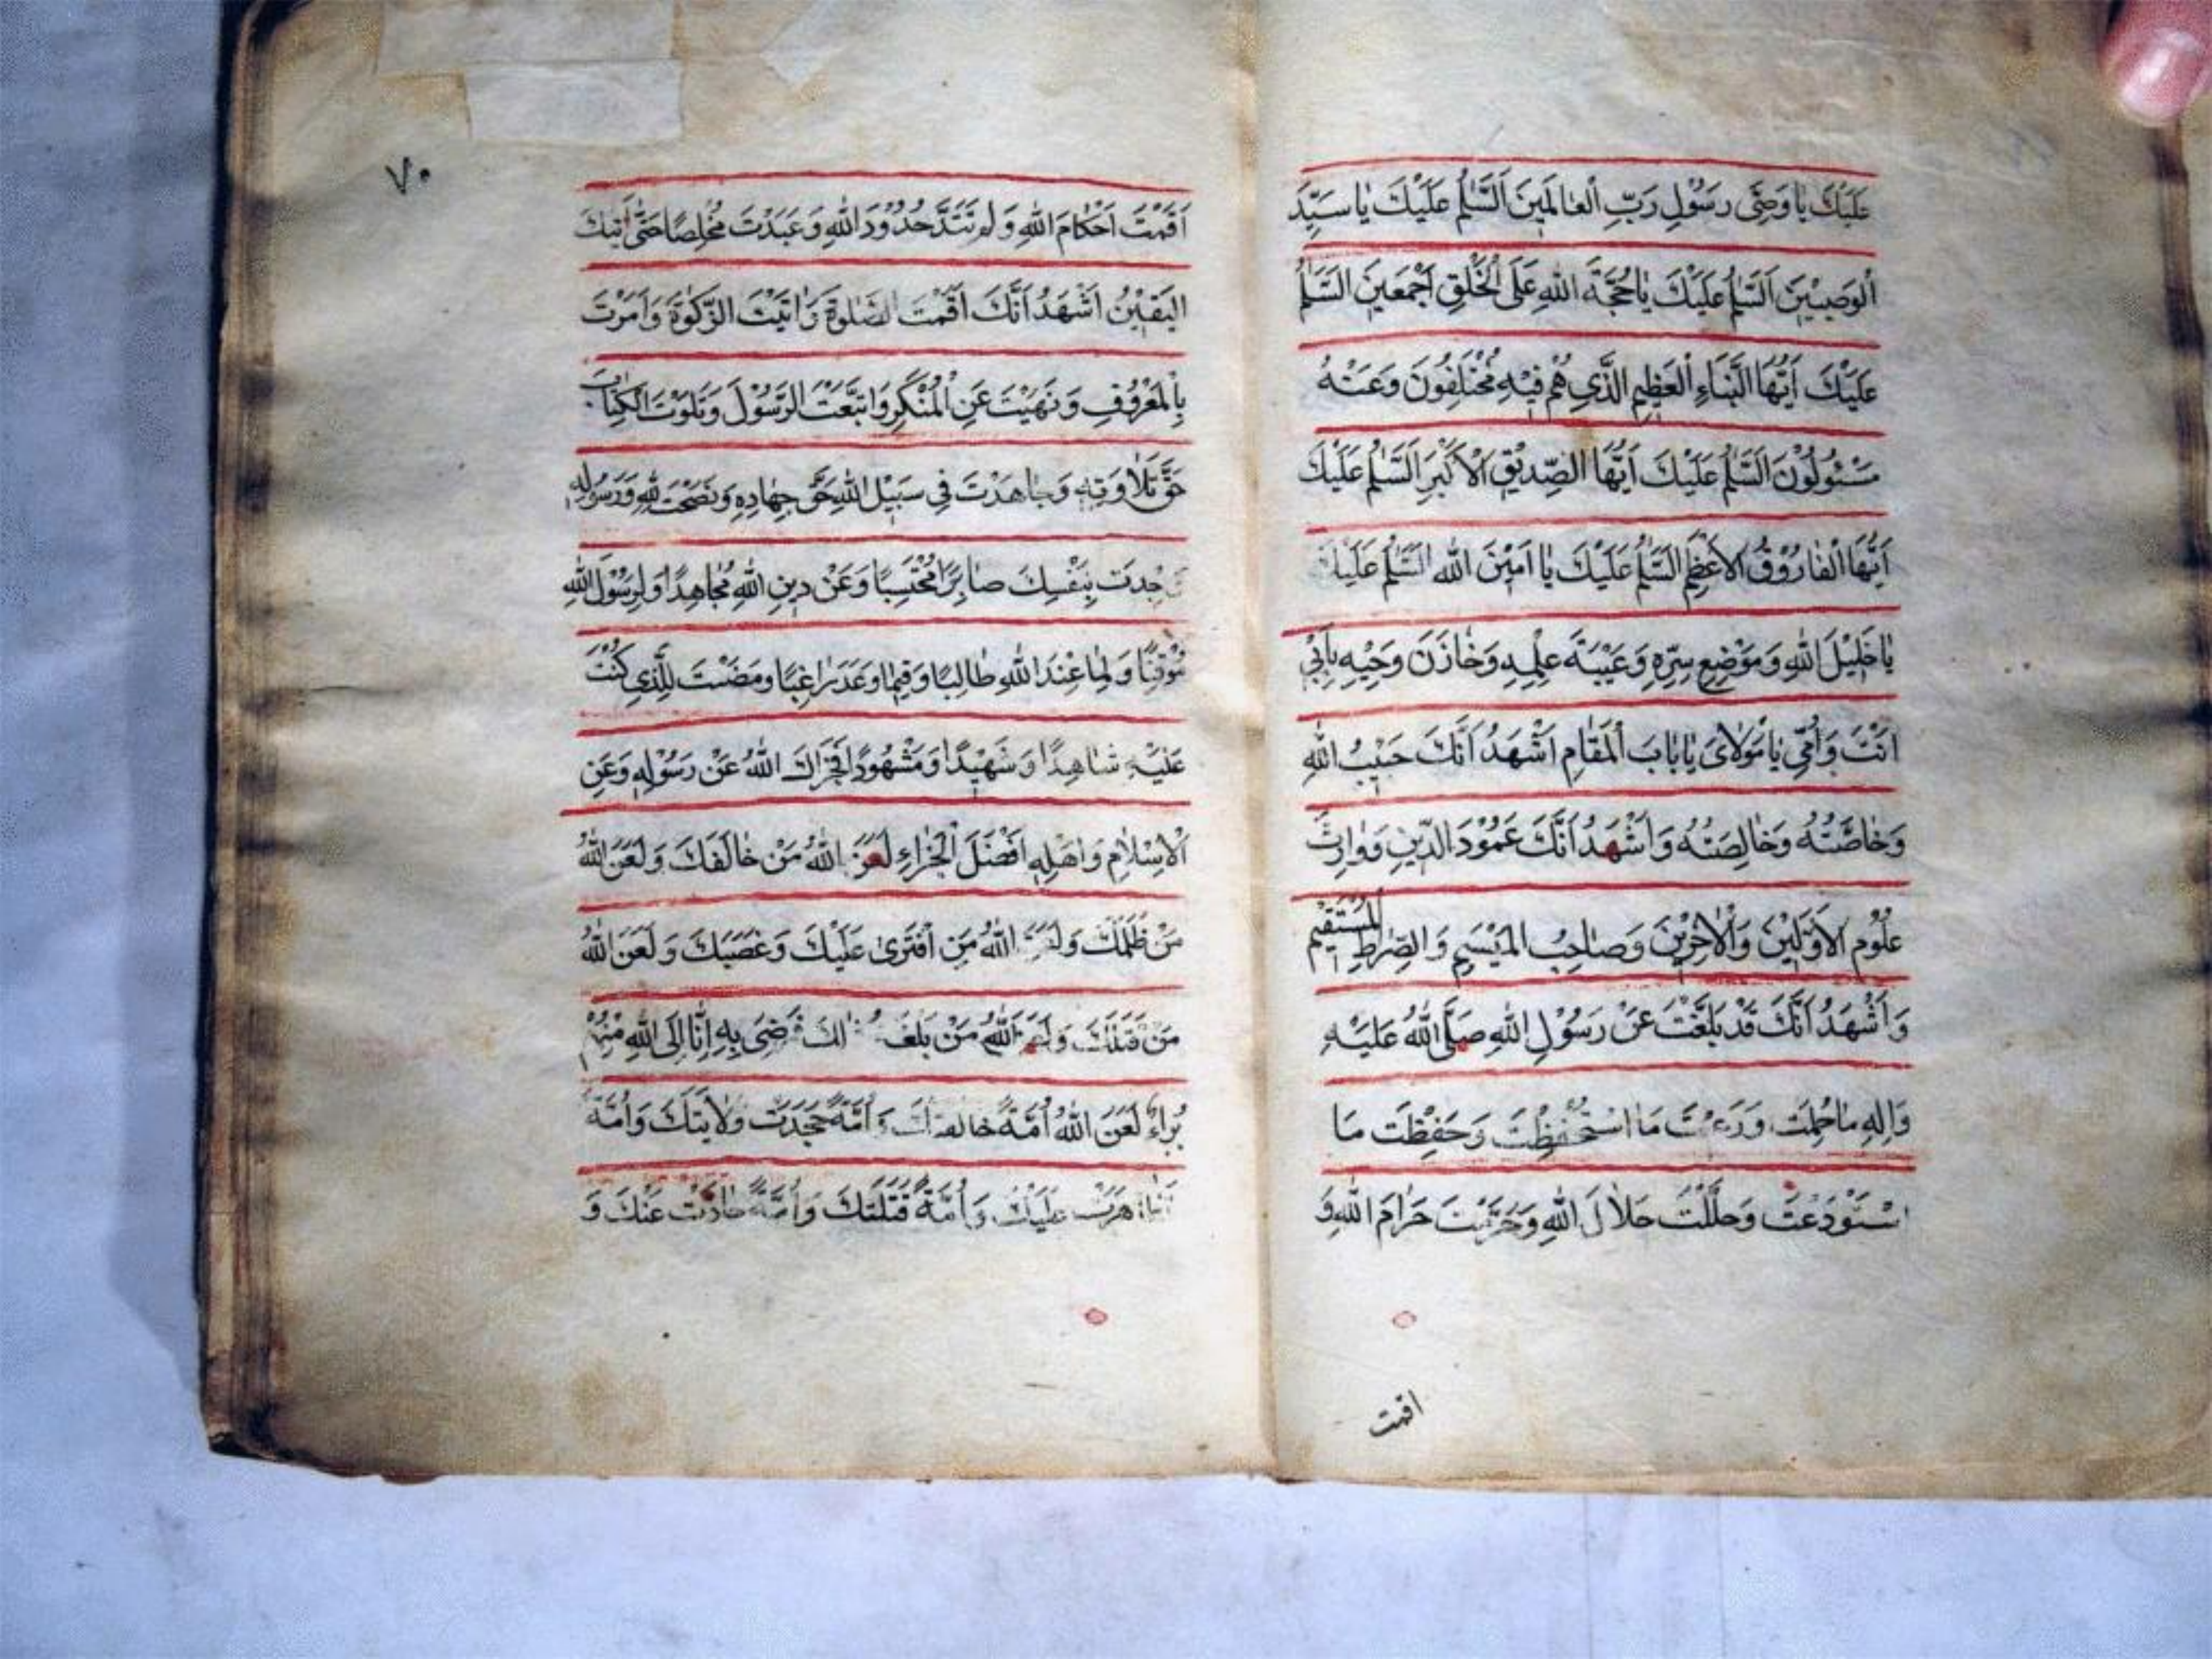 عَلَيْكَ يَا وَصِيَّ رَسُولِ رَبِّ الْعَالَمِينَ اَلسَّلٰمُ عَلَيْكَ يَا سَيِّدَ
الْوَصِيِّينَ اَلسَّلٰمُ عَلَيْكَ يَا حُجَّةَ اللهِ عَلَى الْخَلْقِ اَجْمَعِينَ اَلسَّلٰمُ
عَلَيْكَ اَيُّهَا النَّبَاءِ الْعَظِيمِ الَّذِي هُمْ فِيهِ مُخْتَلِفُونَ وَعَنْهُ
مَسْئُولُونَ اَلسَّلٰمُ عَلَيْكَ اَيُّهَا الصِّدِّيقِ الْاَكْبَرِ اَلسَّلٰمُ عَلَيْكَ
اَيُّهَا الْفَارُوقُ الْاَعْظَمِ اَلسَّلٰمُ عَلَيْكَ يَا اَمِينَ اللهِ اَلسَّلٰمُ عَلَيْكَ
يَا خَلِيلَ اللهِ وَمَوْضِعِ سِرِّهِ وَعَيْبَةَ عِلْمِهِ وَخَازَنَ وَحْيِهِ بِاَبِي
اَنْتَ وَاُمِّي يَا مَوْلَايَ يَا بَابَ الْمَقَامِ اَشْهَدُ اَنَّكَ حَبِيبُ اللهِ
وَخَاصَّتُهُ وَخَالِصَتُهُ وَاَشْهَدُ اَنَّكَ عَمُودَ الدِّينِ وَوَارِثَ
عُلُومِ الْاَوَّلِينَ وَالْاٰخِرِينَ وَصَاحِبُ الْمَيْسَمِ وَالصِّرَاطِ الْمُسْتَقِيمِ
وَاَشْهَدُ اَنَّكَ قَدْ بَلَّغْتَ عَنْ رَسُولِ اللهِ صَلَّى اللهُ عَلَيْهِ
وَاٰلِهِ مَا حُمِلْتَ وَرَعَيْتَ مَا اسْتُحْفِظْتَ وَحَفِظْتَ مَا
اسْتَوْدَعْتَ وَحَلَّلْتَ حَلَالَ اللهِ وَحَرَّمْتَ حَرَامَ اللهِ وَ
اقمت
٧٠
اَقَمْتَ اَحْكَامَ اللهِ وَلَمْ تَتَدَّ حُدُودَ اللهِ وَعَبَدْتَ مُخْلِصًا حَتّٰى اَتٰيكَ
الْيَقِينُ اَشْهَدُ اَنَّكَ اَقَمْتَ الصَّلٰوةَ وَاٰتَيْتَ الزَّكٰوةَ وَاَمَرْتَ
بِالْمَعْرُوفِ وَنَهَيْتَ عَنِ الْمُنْكَرِ وَاتَّبَعْتَ الرَّسُولَ وَتَلَوْتَ الْكِتَابَ
حَقَّ تَلَاوَتِهِ وَجَاهَدْتَ فِي سَبِيلِ اللهِ حَقَّ جِهَادِهِ وَنَصَحْتَ لِلّٰهِ وَرَسُولِهِ
وَجِدتَ بِنَفْسِكَ صَابِرًا مُحْتَسِبًا وَعَنْ دِينِ اللهِ مُجَاهِدًا وَلِرَسُولِ اللهِ
مُوْقِنًا وَلِمَا عِنْدَ اللهِ طَالِبًا وَفِيمَا وَعَدَ رَاغِبًا وَمَضَيْتَ لِلَّذِي كُنْتَ
عَلَيْهِ شَاهِدًا وَشَهِيدًا وَمَشْهُودًا فَجَزَاكَ اللهُ عَنْ رَسُولِهِ وَعَنِ
الْاِسْلَامِ وَاَهْلِهِ اَفْضَلَ الْجَزَاءِ لَعَنَ اللهُ مَنْ خَالَفَكَ وَلَعَنَ اللهُ
مَنْ ظَلَمَكَ وَلَعَنَ اللهُ مَنِ افْتَرٰى عَلَيْكَ وَغَصَبَكَ وَلَعَنَ اللهُ
مَنْ قَتَلَكَ وَلَعَنَ اللهُ مَنْ بَلَغَهُ ذٰلِكَ فَرَضِيَ بِهِ اِنَّا اِلَى اللهِ مِنْهُمْ
بُرَاءٌ لَعَنَ اللهُ اُمَّةً خَالَفَتْكَ وَ اُمَّةً جَحَدَتْ وَلَايَتَكَ وَاُمَّةً
تَظَاهَرَتْ عَلَيْكَ وَاُمَّةً قَتَلَتْكَ وَاُمَّةً حَادَتْ عَنْكَ وَ